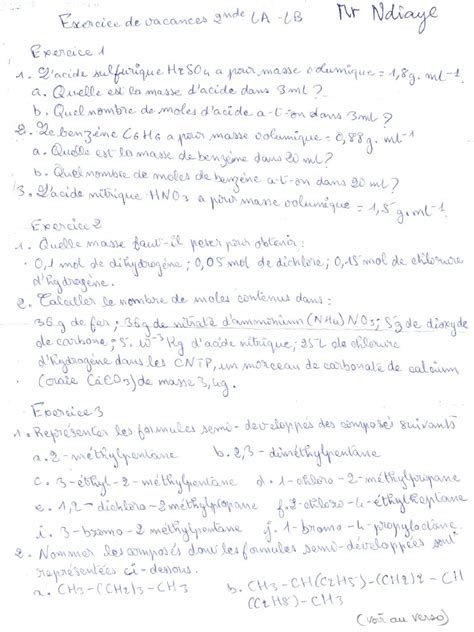 Exercice de vacances 2nde LA - LB Mr Ndiaye
Exercice 1
1. L'acide sulfurique H2SO4 a pour masse volumique = 1,8g. ml-1.
a. Quelle est la masse d'acide dans 3ml?
b. Quel nombre de moles d'acide a-t-on dans 3ml?
2. Le benzène C6H6 a pour masse volumique = 0,88g. ml-1
a. Quelle est la masse de benzène dans 20 ml?
b. Quel nombre de moles de benzène a-t-on dans 20 ml?
3. L'acide nitrique HNO3 a pour masse volumique = 1,5 g.ml-1.
Exercice 2
1. Quelle masse faut-il peser pour obtenir :
0,1 mol de dihydrogène ; 0,05 mol de dichlore ; 0,15 mol de chlorure
d'hydrogène.
2. Calculer le nombre de moles contenus dans :
36 g de fer ; 36g de nitrate d'ammonium (NH4) NO3 ; 5g de dioxyde
de carbone ; 5. 10-3 Kg d'acide nitrique ; 25l de chlorure
d'hydrogène dans les CNTP, un morceau de carbonate de calcium
(craie CaCO3) de masse 3,4g.
Exercice 3
1. Représenter les formules semi-développées des composés suivants
a. 2-méthylpentane b. 2,3-diméthylpentane
c. 3-éthyl-2-méthylpentane d. 1-chloro-2-méthylpropane
e. 1,2-dichloro-2-méthylpropane f. 2-chloro-4-éthylheptane
i. 3-bromo-2 méthylpentane j. 1-bromo-4-propyloctane.
2. Nommer les composés dont les formules semi-développées sont
représentées ci-dessous.
a. CH3-(CH2)3-CH3 b. CH3-CH(C2H5)-(CH2)2-CH
(C2H5)-CH3
(voir au verso)